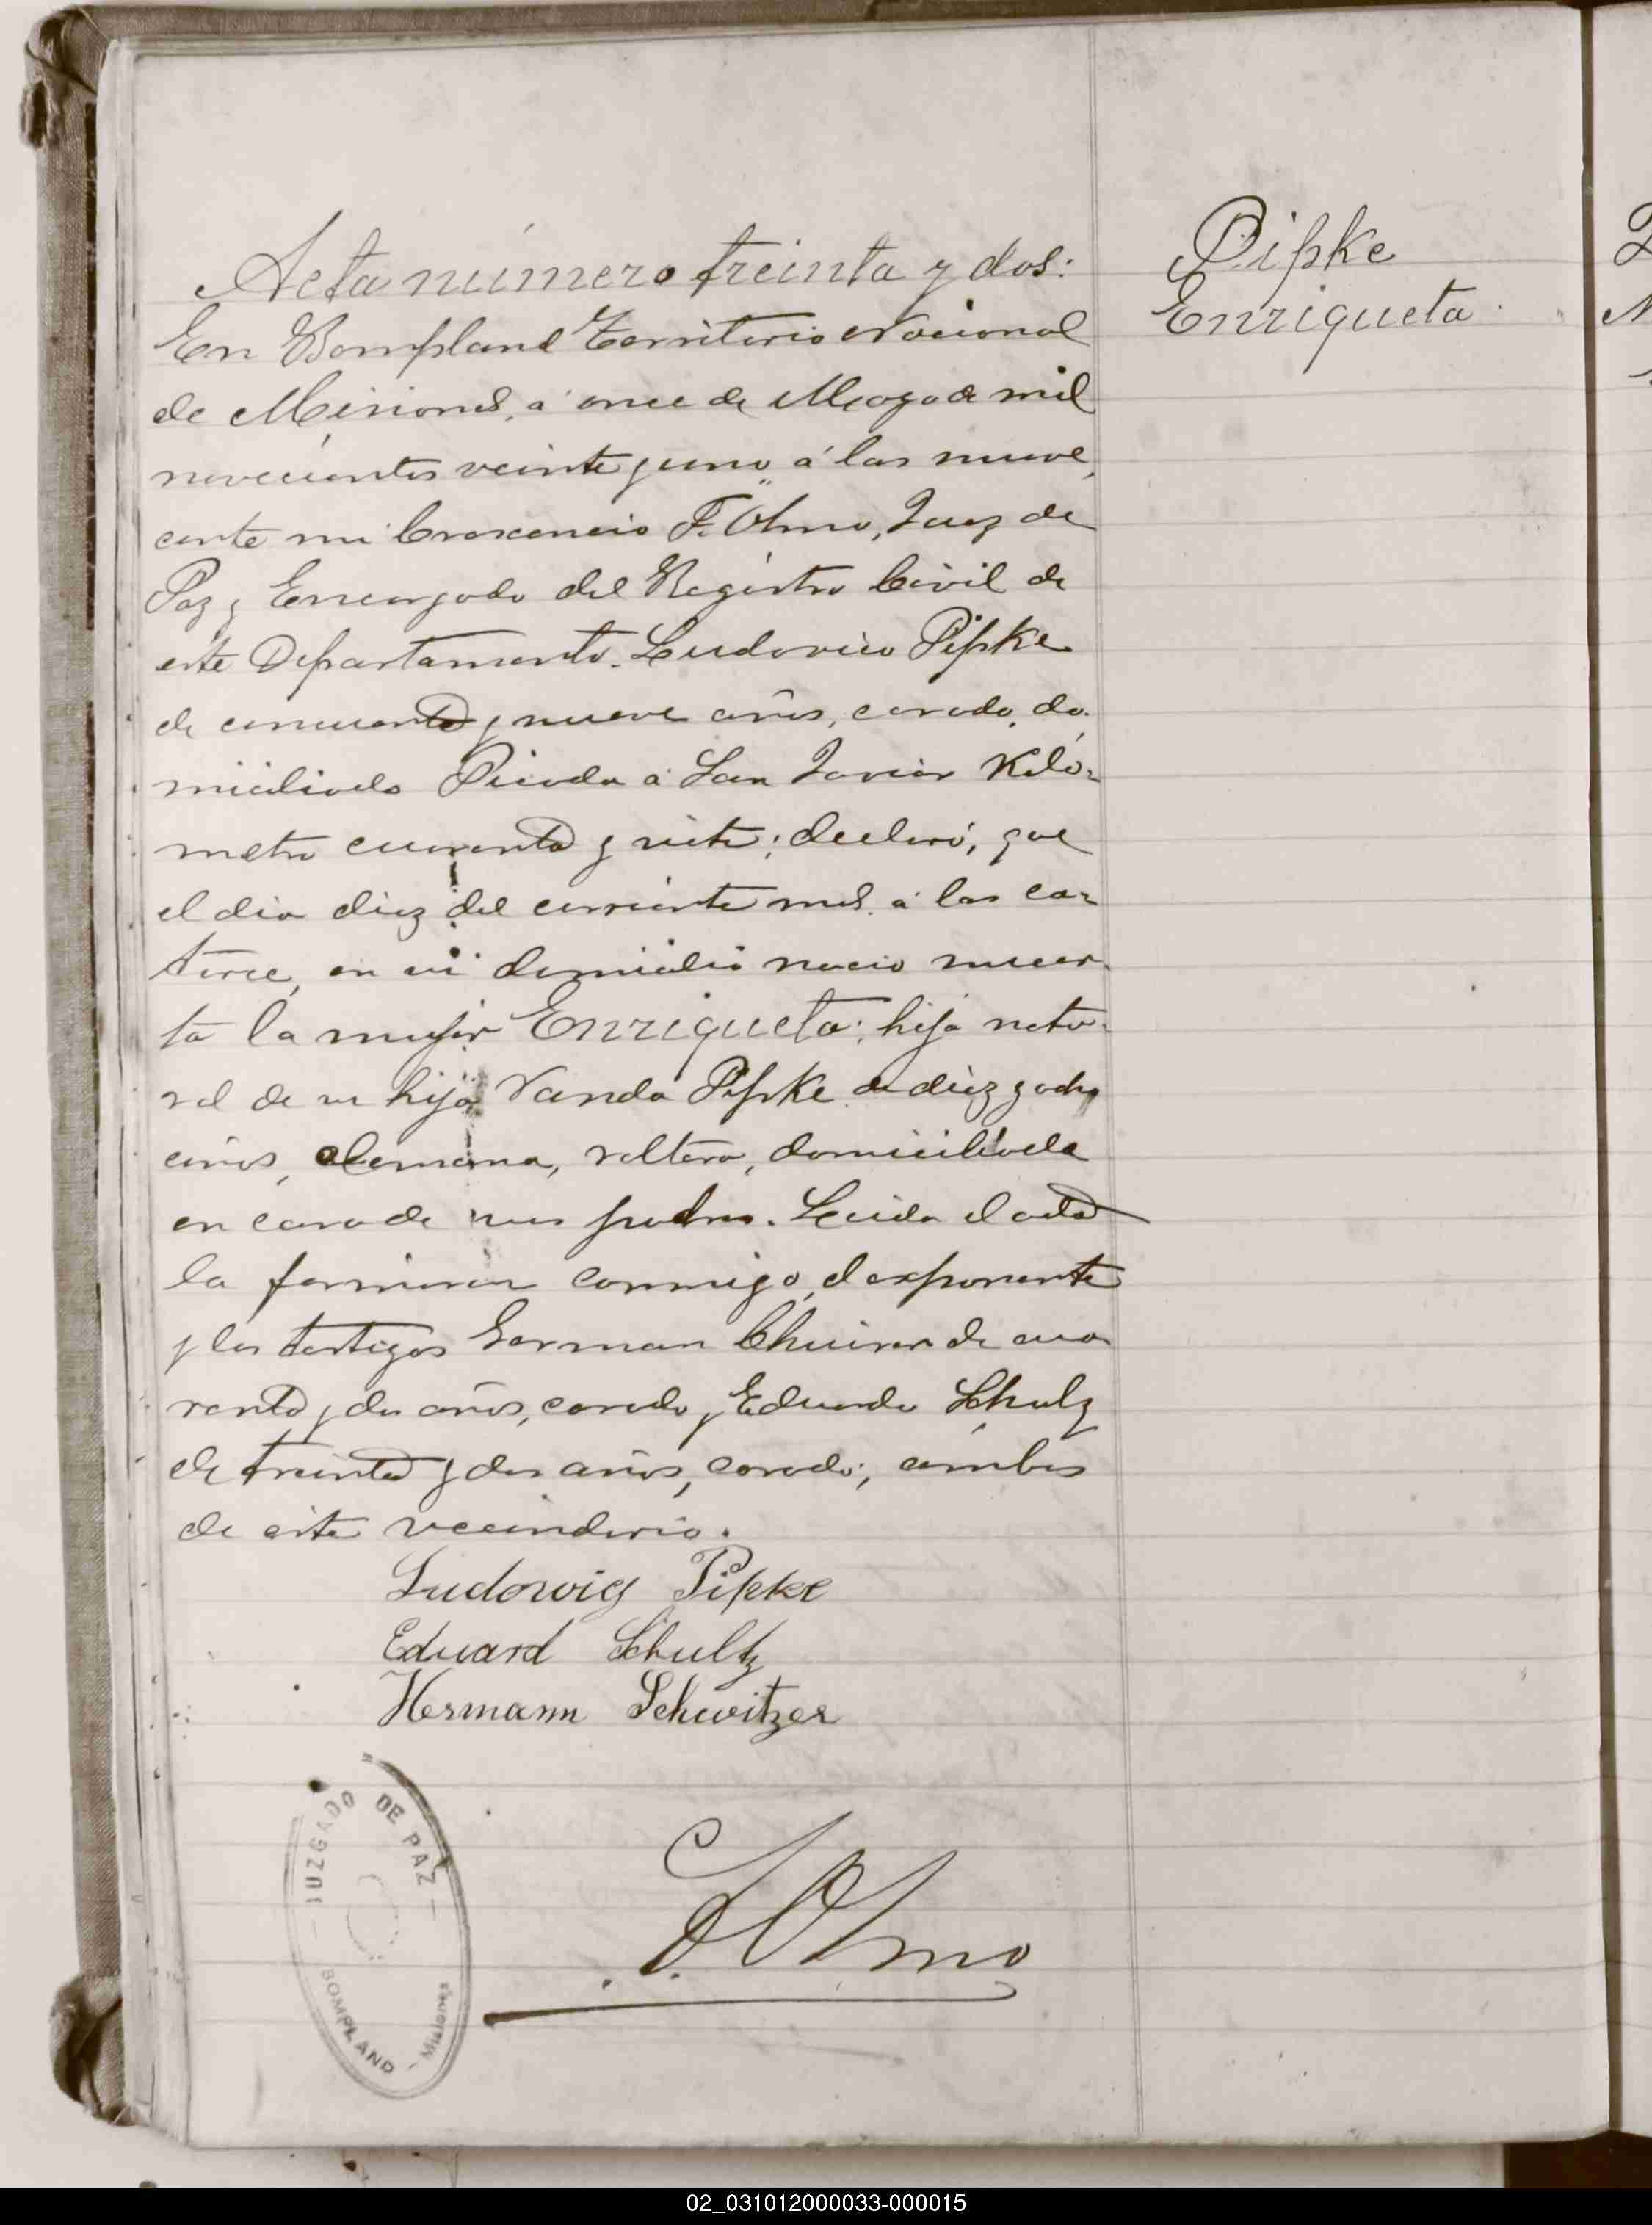 Acta número treinta y dos:
En Bompland Territorio Nacional
de Misiones, á once de Mayo de mil
novecientos veinte y uno á las nueve,
ante mi Crescencio F. Olmo, Juez de
Paz y Encargado del Registro Civil de
este Departamento. Ludovico Pipke
de cincuenta y nueve años, casado, do-
miciliado Picada á San Javier Kiló-
metro cuarenta y siete; declaró, que
el dia diez del corriente mes á las ca-
torce, en su domicilio nacio muer-
ta la mujer Enriqueta; hija natu-
ral de su hija Vanda Pipke de diez y ocho
años, alemana, soltera, domiciliada
en casa de sus padres. Leida el acta
la firmaron conmigo, el exponente
y los testigos German de cua
renta y dos años, casado y Eduardo Schulz
de treinta y dos años, casado; ambos
de este vecindario.
Ludowig Pipke
Eduard Schultz
Hermann Schwitzer
F. Olmo
JUZGADO DE PAZ
BOMPLAND - Misiones
Pipke
Enriqueta
02_031012000033-000015